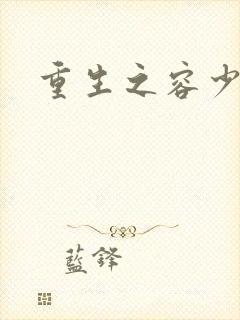 重生之容少
藍鋒